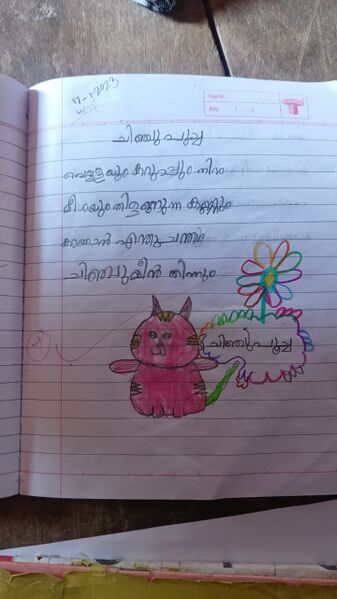 17-1-2023
wed
Page No.
Date: / /
ചിഞ്ചുപൂച്ച
വെള്ളയും കറുപ്പും നിറം
മീശയും തിളങ്ങുന്ന കണ്ണും
കാണാൻ എന്തു ചന്തം
ചിഞ്ചുമീൻ തിന്നും
ചിഞ്ചുപൂച്ച